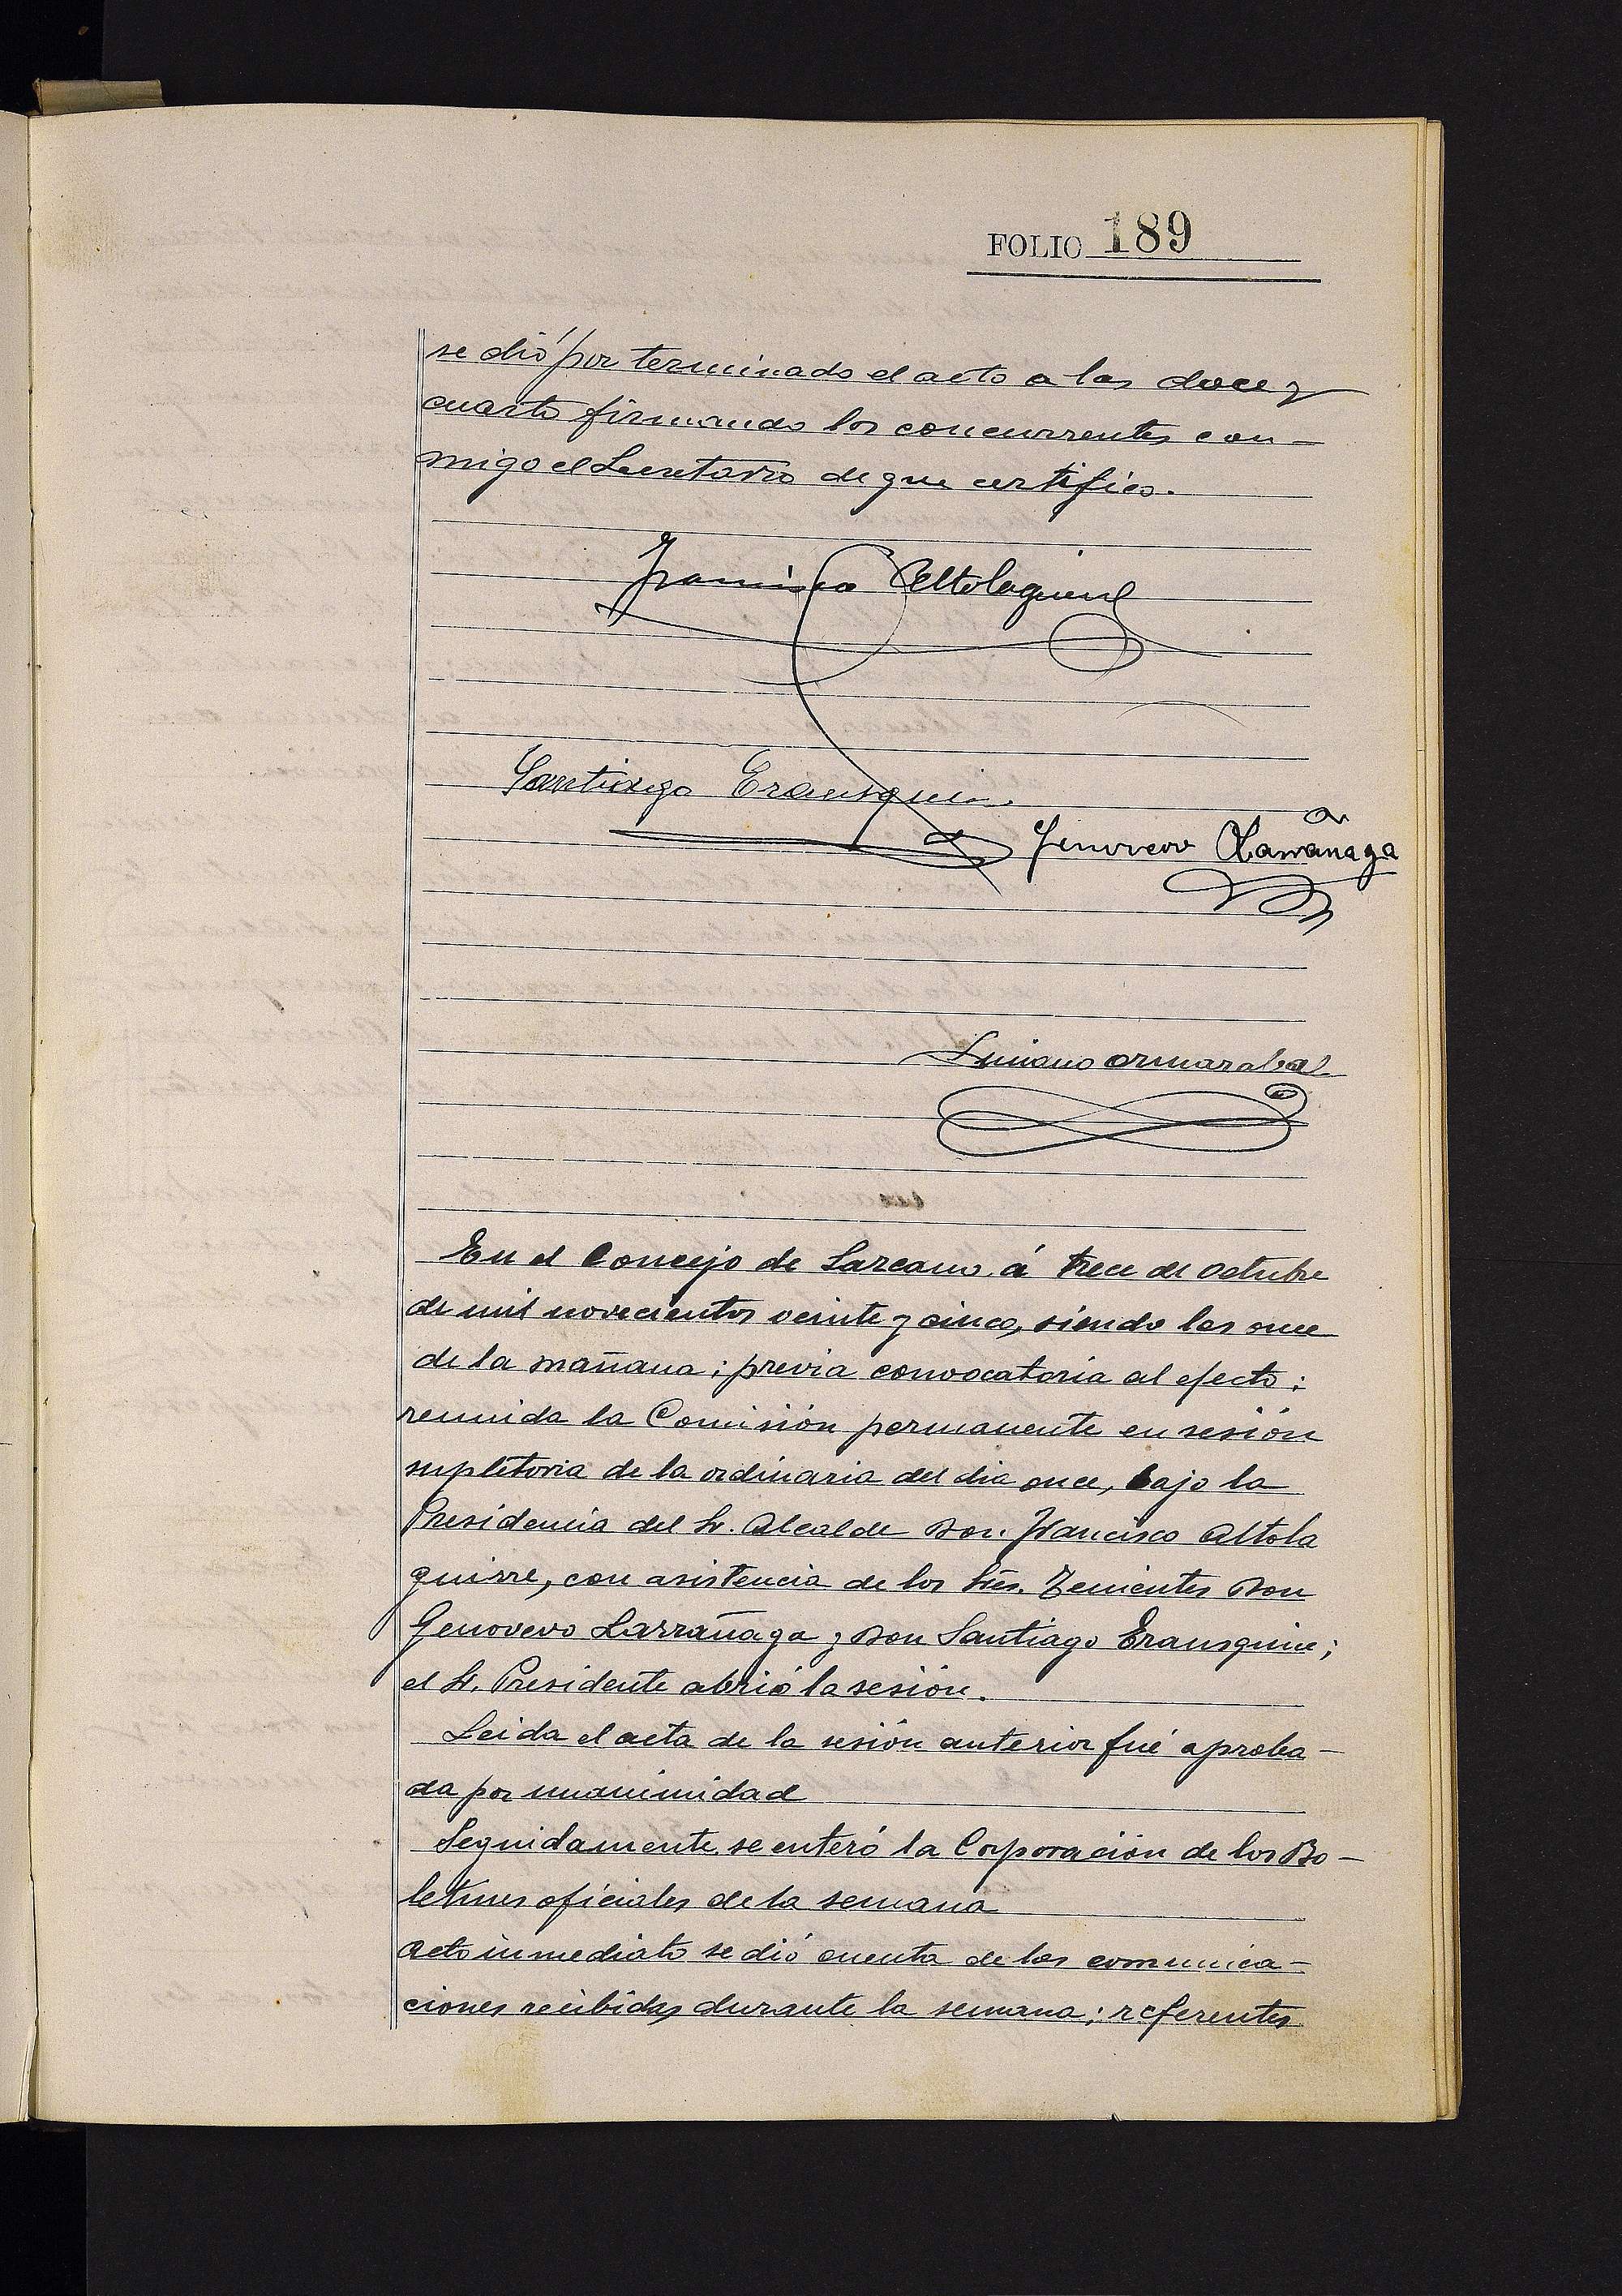 FOLIO 189
se dió por terminado el acto a las doce y
cuarto firmando los concurrentes con-
migo el Secretario de que certifico.
Francisco Altolaguirre
Santiago Erausquin
Genovevo Larrañaga
Luciano Ormazabal
En el Concejo de Lazcano á trece de octubre
de mil novecientos veinte y cinco, siendo las once
de la mañana; previa convocatoria al efecto;
reunida la Comisión permanente en sesión
supletoria de la ordinaria del dia once, bajo la
Presidencia del Sr. Alcalde Don Francisco Altola
guirre, con asistencia de los Sres. Tenientes Don
Genovevo Larrañaga y Don Santiago Erausquin;
el Sr. Presidente abrió la sesión.
Leida el acta de la sesión anterior fué aproba-
da por unanimidad
Seguidamente se enteró la Corporación de los Bo-
letines oficiales de la semana
Acto inmediato se dió cuenta de las comunica-
ciones recibidas durante la semana; referentes